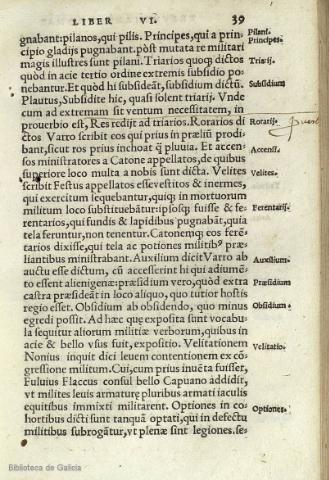 LIBER VI. 39
gnabant: pilanos, qui pilis. Principes, qui a prin-
cipio gladijs pugnabant. pòst mutata re militari
magis illustres sunt pilani. Triarios quoq; dictos
quòd in acie tertio ordine extremis subsidio po-
nebantur. Et quòd hi subsideāt, subsidium dictū.
Plautus, Subsidite hic, quasi solent triarij. Vnde
cum ad extremam sit ventum necessitatem, in
prouerbio est, Res redijt ad triarios. Rorarios di
ctos Varro scribit eos qui prius in prœliū prodi-
bant, sicut ros prius inchoat q̄ pluuia. Et accen-
sos ministratores a Catone appellatos, de quibus
superiore loco multa a nobis sunt dicta. Velites
scribit Festus appellatos esse vestitos & inermes,
qui exercitum sequebantur, quiq; in mortuorum
militum loco substituebātur: ipsosq; fuisse & fe-
rentarios, qui fundis & lapidibus pugnabāt, quia
tela feruntur, non tenentur. Catonemq; eos ferē-
tarios dixisse, qui tela ac potiones militibꝰ præ-
liantibus ministrabant. Auxilium dicit Varro ab
auctu esse dictum, cū accesserint hi qui adiumē-
to essent alienigenæ: præsidium vero, quòd extra
castra præsideāt in loco aliquo, quo tutior hostis
regio esset. Obsidium ab obsidendo, quo minus
egredi possit. Ad hæc que exposita sunt vocabu-
la sequitur aliorum militiæ verborum, quibus in
acie & bello vsus fuit, expositio. Velitationem
Nonius inquit dici leuem contentionem ex cō-
gressione militum. Cui, cum prius inuēta fuisset,
Fuluius Flaccus consul bello Capuano addidit,
vt milites leuis armaturę pluribus armati iaculis
equitibus immixti militarent. Optiones in co-
hortibus dicti sunt tanquā optati, qui in defectu
militibus subrogātur, vt plenæ sint legiones. se-
Pilani.
Principes.
Triarij.
Subsidium
Rorarij.
Accensi.
Velites.
Ferentarij.
Auxilium.
Præsidium
Obsidium
Velitatio.
Optiones.
Biblioteca de Galicia